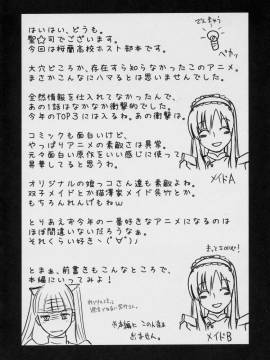 はいはい、どうも。
聖☆司でございます。
今回は桜蘭高校ホスト部本です。
大穴どころか、存在すら知らなかったこのアニメ。
まさかこんなにハマるとは思いませんでした。
全然情報を仕入れてなかったんで、
あの1話はなかなか衝撃的でした。
今年のTOP3には入るわ。あの衝撃は。
コミックも面白いけど、
やっぱりアニメの素敵さは異常。
元々面白い原作をいい感じに使って
昇華してると思うわ。
オリジナルの娘っコさん達も素敵よね。
双子メイドとか猫澤家メイド呉竹とか。
もちろんれんげもねw
とりあえず今年の一番好きなアニメになるのは
ほぼ間違いないだろうなぁ。
それくらい好き〜(´∀`)ﾉ
とまぁ、前書きもこんなところで、
本編にいってみよ!
ピカッ
メイドA
メイドB
※本編に この人達は
出ません。